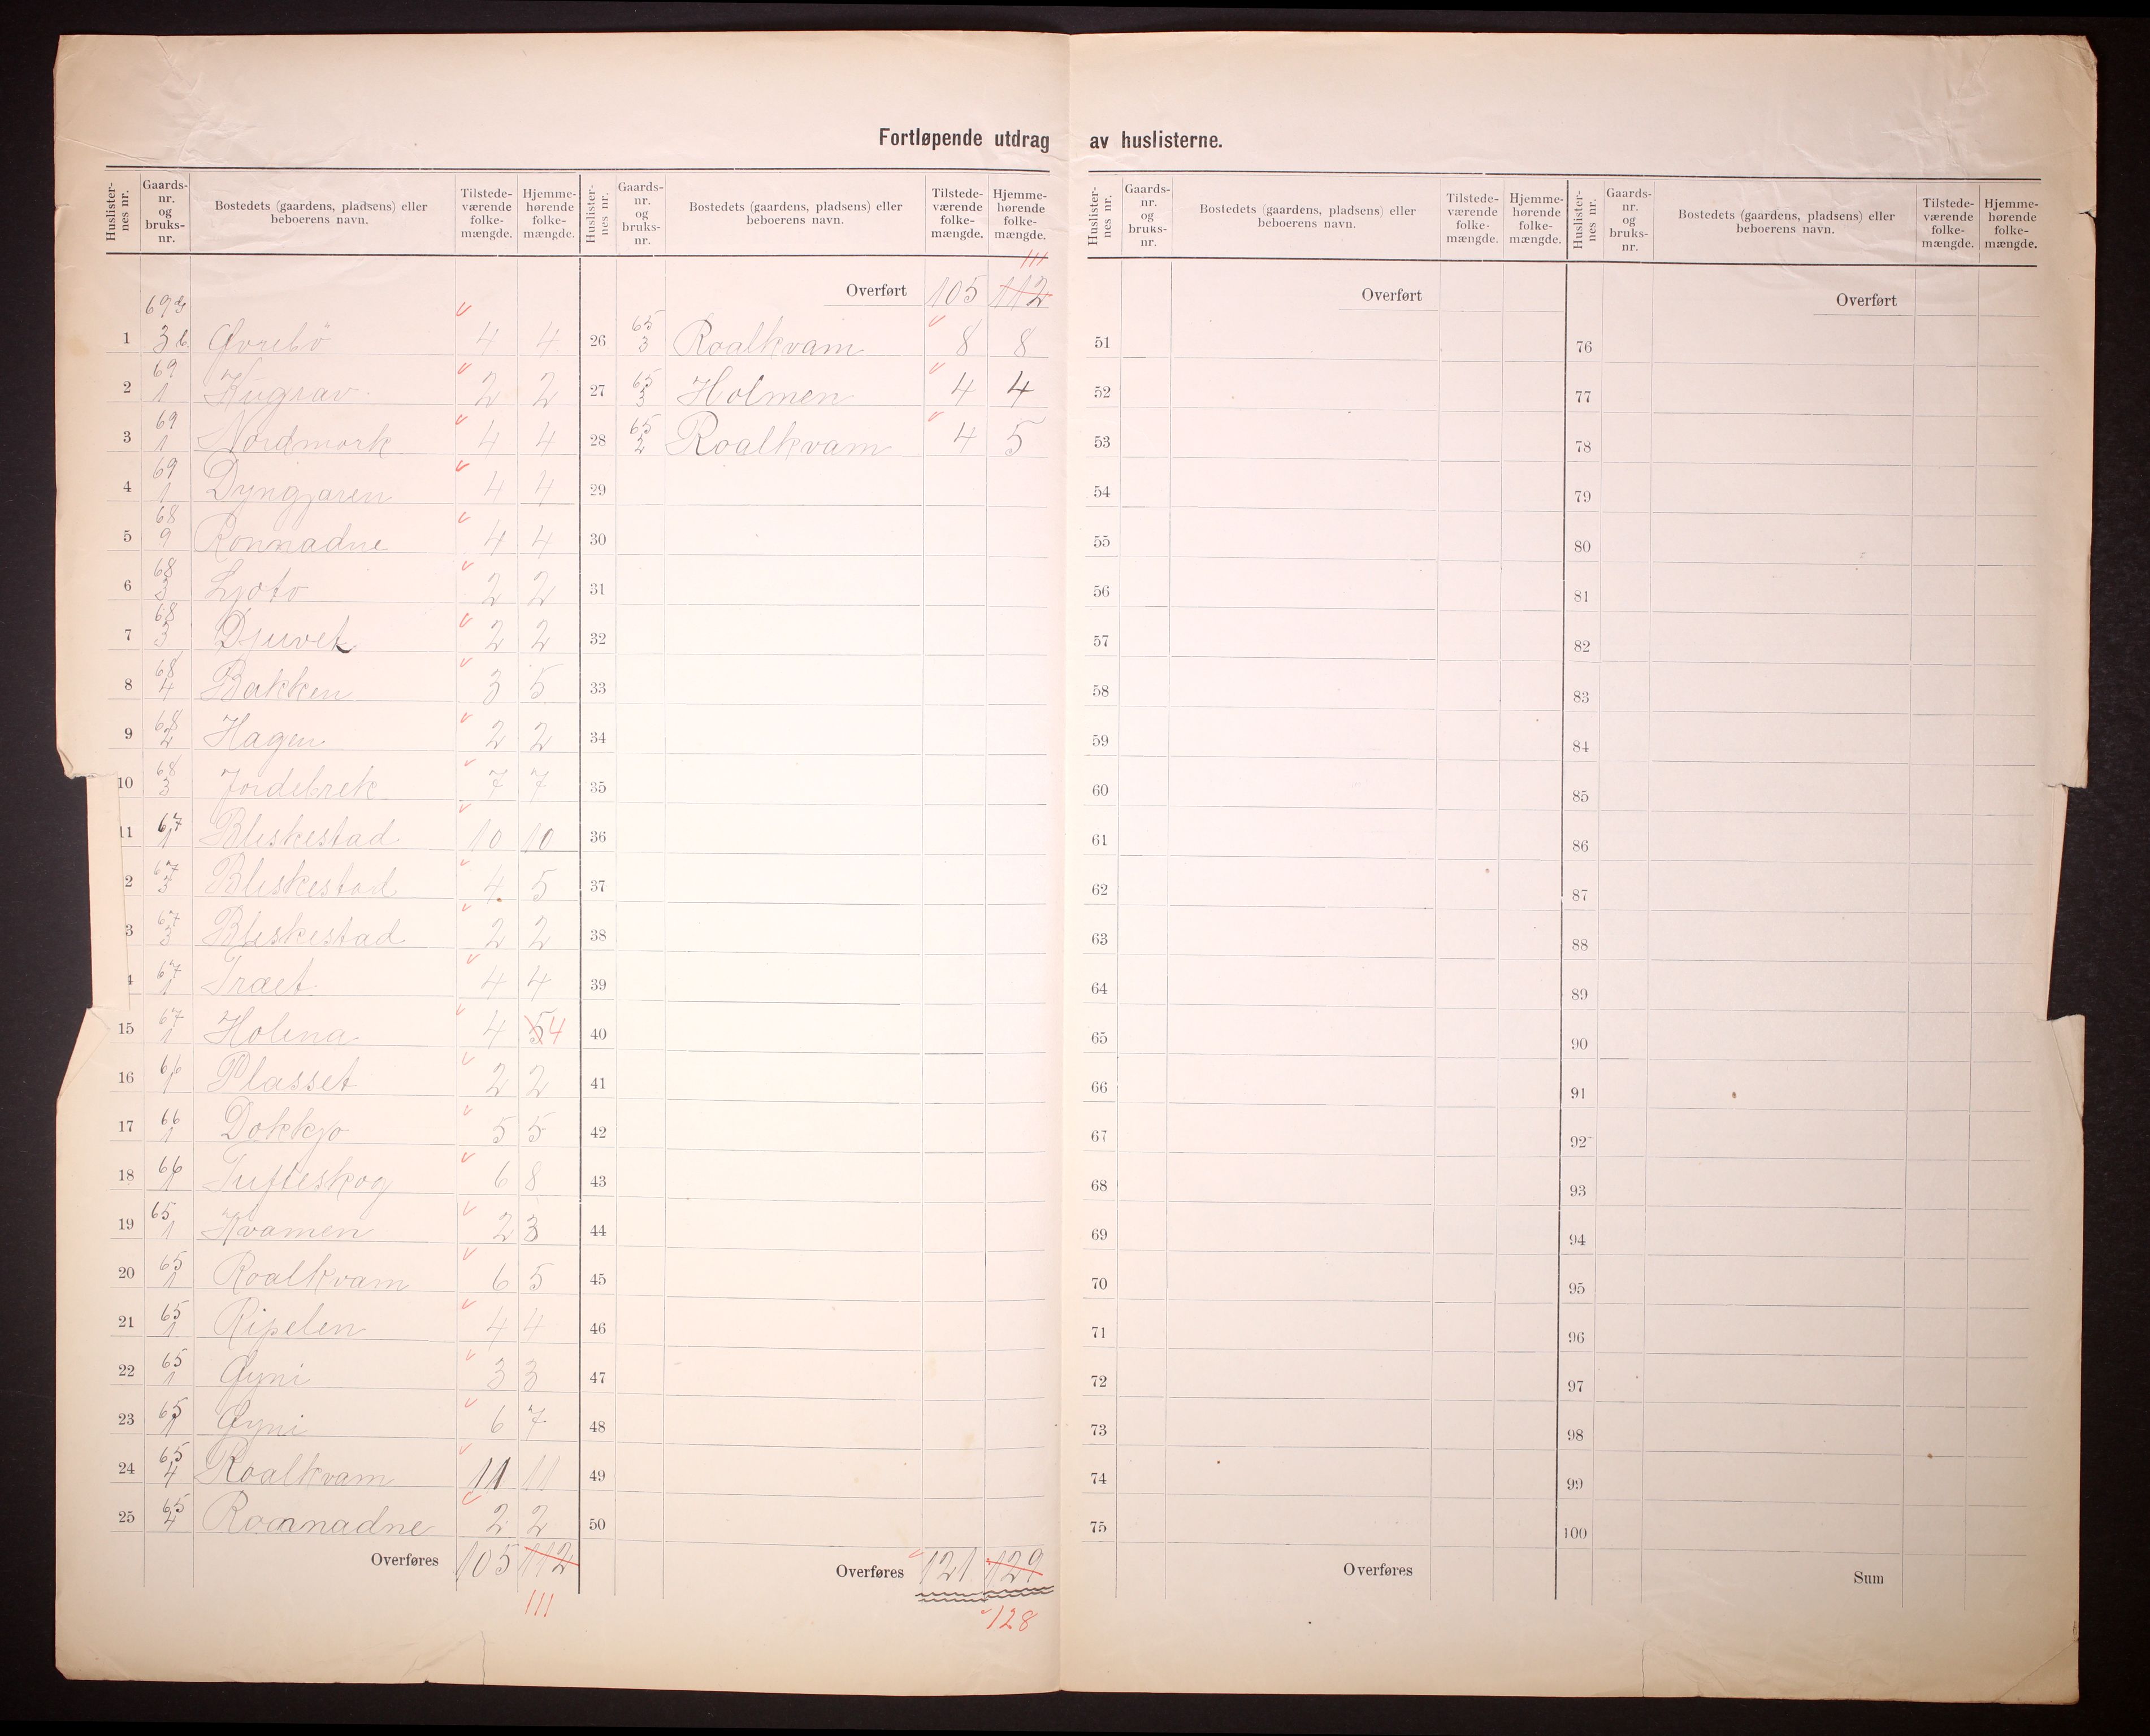 Fortløpende utdrag av huslisterne.
Huslister-nes nr. | Gaards-nr. og bruks-nr. | Bostedets (gaardens, pladsens) eller beboerens navn. | Tilstede-værende folke-mængde. | Hjemme-hørende folke-mængde.
1 | 69 3 b | Øvrebö | 4 | 4
2 | 69 1 | Hugrav | 2 | 2
3 | 69 1 | Nordmork | 4 | 4
4 | 69 1 | Dyngjaren | 4 | 4
5 | 68 9 | Ronnadne | 4 | 4
6 | 68 3 | Ljoto | 2 | 2
7 | 68 3 | Djuvek | 2 | 2
8 | 68 4 | Bakken | 3 | 5
9 | 68 4 | Hagen | 2 | 2
10 | 68 3 | Jordebrek | 7 | 7
11 | 67 1 | Bleskestad | 10 | 10
2 | 67 3 | Bleskestad | 4 | 5
3 | 67 3 | Bleskestad | 2 | 2
4 | 67 1 | Træet | 4 | 4
15 | 67 1 | Holena | 4 | 5 4
16 | 66 1 | Plasset | 2 | 2
17 | 66 1 | Dokkjo | 5 | 5
18 | 66 1 | Tufteskog | 6 | 8
19 | 65 1 | Kvamen | 2 | 3
20 | 65 1 | Roalkvam | 6 | 5
21 | 65 1 | Ripelen | 4 | 4
22 | 65 1 | Øyni | 3 | 3
23 | 65 1 | Øyni | 6 | 7
24 | 65 4 | Roalkvam | 11 | 11
25 | 65 4 | Roonnadne | 2 | 2
Overføres | 105 | 112
111
Huslister-nes nr. | Gaards-nr. og bruks-nr. | Bostedets (gaardens, pladsens) eller beboerens navn. | Tilstede-værende folke-mængde. | Hjemme-hørende folke-mængde.
111
Overført | 105 | 112
26 | 65 3 | Roalkvam | 8 | 8
27 | 65 3 | Holmen | 4 | 4
28 | 65 2 | Roalkvam | 4 | 5
29
30
31
32
33
34
35
36
37
38
39
40
41
42
43
44
45
46
47
48
49
50
Overføres | 121 | 129
128
Huslister-nes nr. | Gaards-nr. og bruks-nr. | Bostedets (gaardens, pladsens) eller beboerens navn. | Tilstede-værende folke-mængde. | Hjemme-hørende folke-mængde.
Overført
51
52
53
54
55
56
57
58
59
60
61
62
63
64
65
66
67
68
69
70
71
72
73
74
75
Overføres
Huslister-nes nr. | Gaards-nr. og bruks-nr. | Bostedets (gaardens, pladsens) eller beboerens navn. | Tilstede-værende folke-mængde. | Hjemme-hørende folke-mængde.
Overført
76
77
78
79
80
81
82
83
84
85
86
87
88
89
90
91
92
93
94
95
96
97
98
99
100
Sum